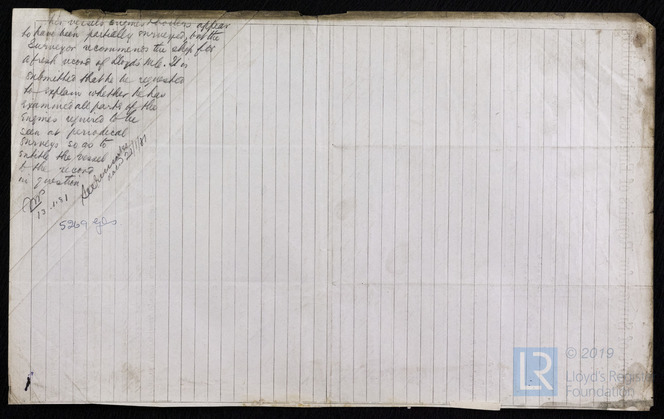 vessels engines & boilers appear
to have been partially surveyed, but the
Surveyor recommends the ship for
a fresh record of Lloyds M.C. It is
submitted that he be requested
to explain whether he has
examined all parts of the
Engines required to be
seen at periodical
surveys so as to
entitle the vessel
to the record
in question
See
5269
LR
© 2019
Lloyd's Register
Foundation